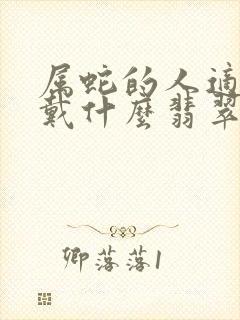 属蛇的人适
戴什麽翡翠
卿落落1